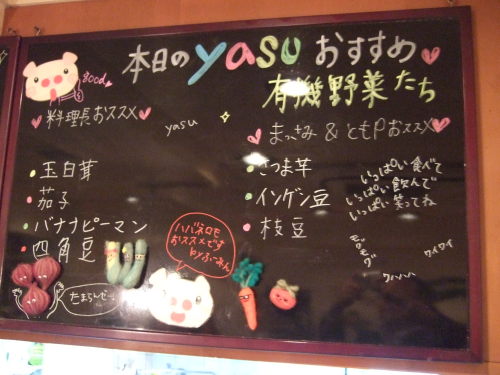 本日のyasuおすすめ
good
有機野菜たち
料理長おススメ
yasu
玉白茸
茄子
バナナピーマン
四角豆
まっさみ & ともPおススメ
さつま芋
インゲン豆
枝豆
いっぱい食べて
いっぱい飲んで
いっぱい笑ってね
モグモグ
ワイワイ
ワハハハ
ハバネロも
おススメです
byぶーみん
たまらんぜー!